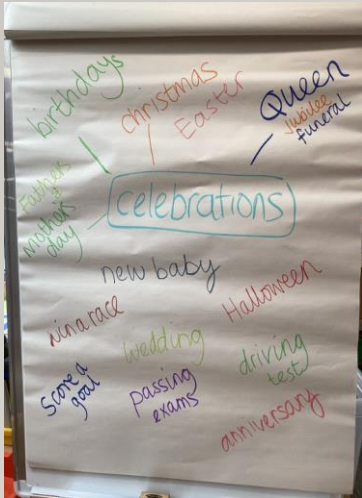 birthdays
christmas
Easter
Queen
Jubilee
funeral
Fathers
&
mothers
day
celebrations
new baby
win a race
Halloween
wedding
driving
test
score a
goal
passing
exams
anniversary